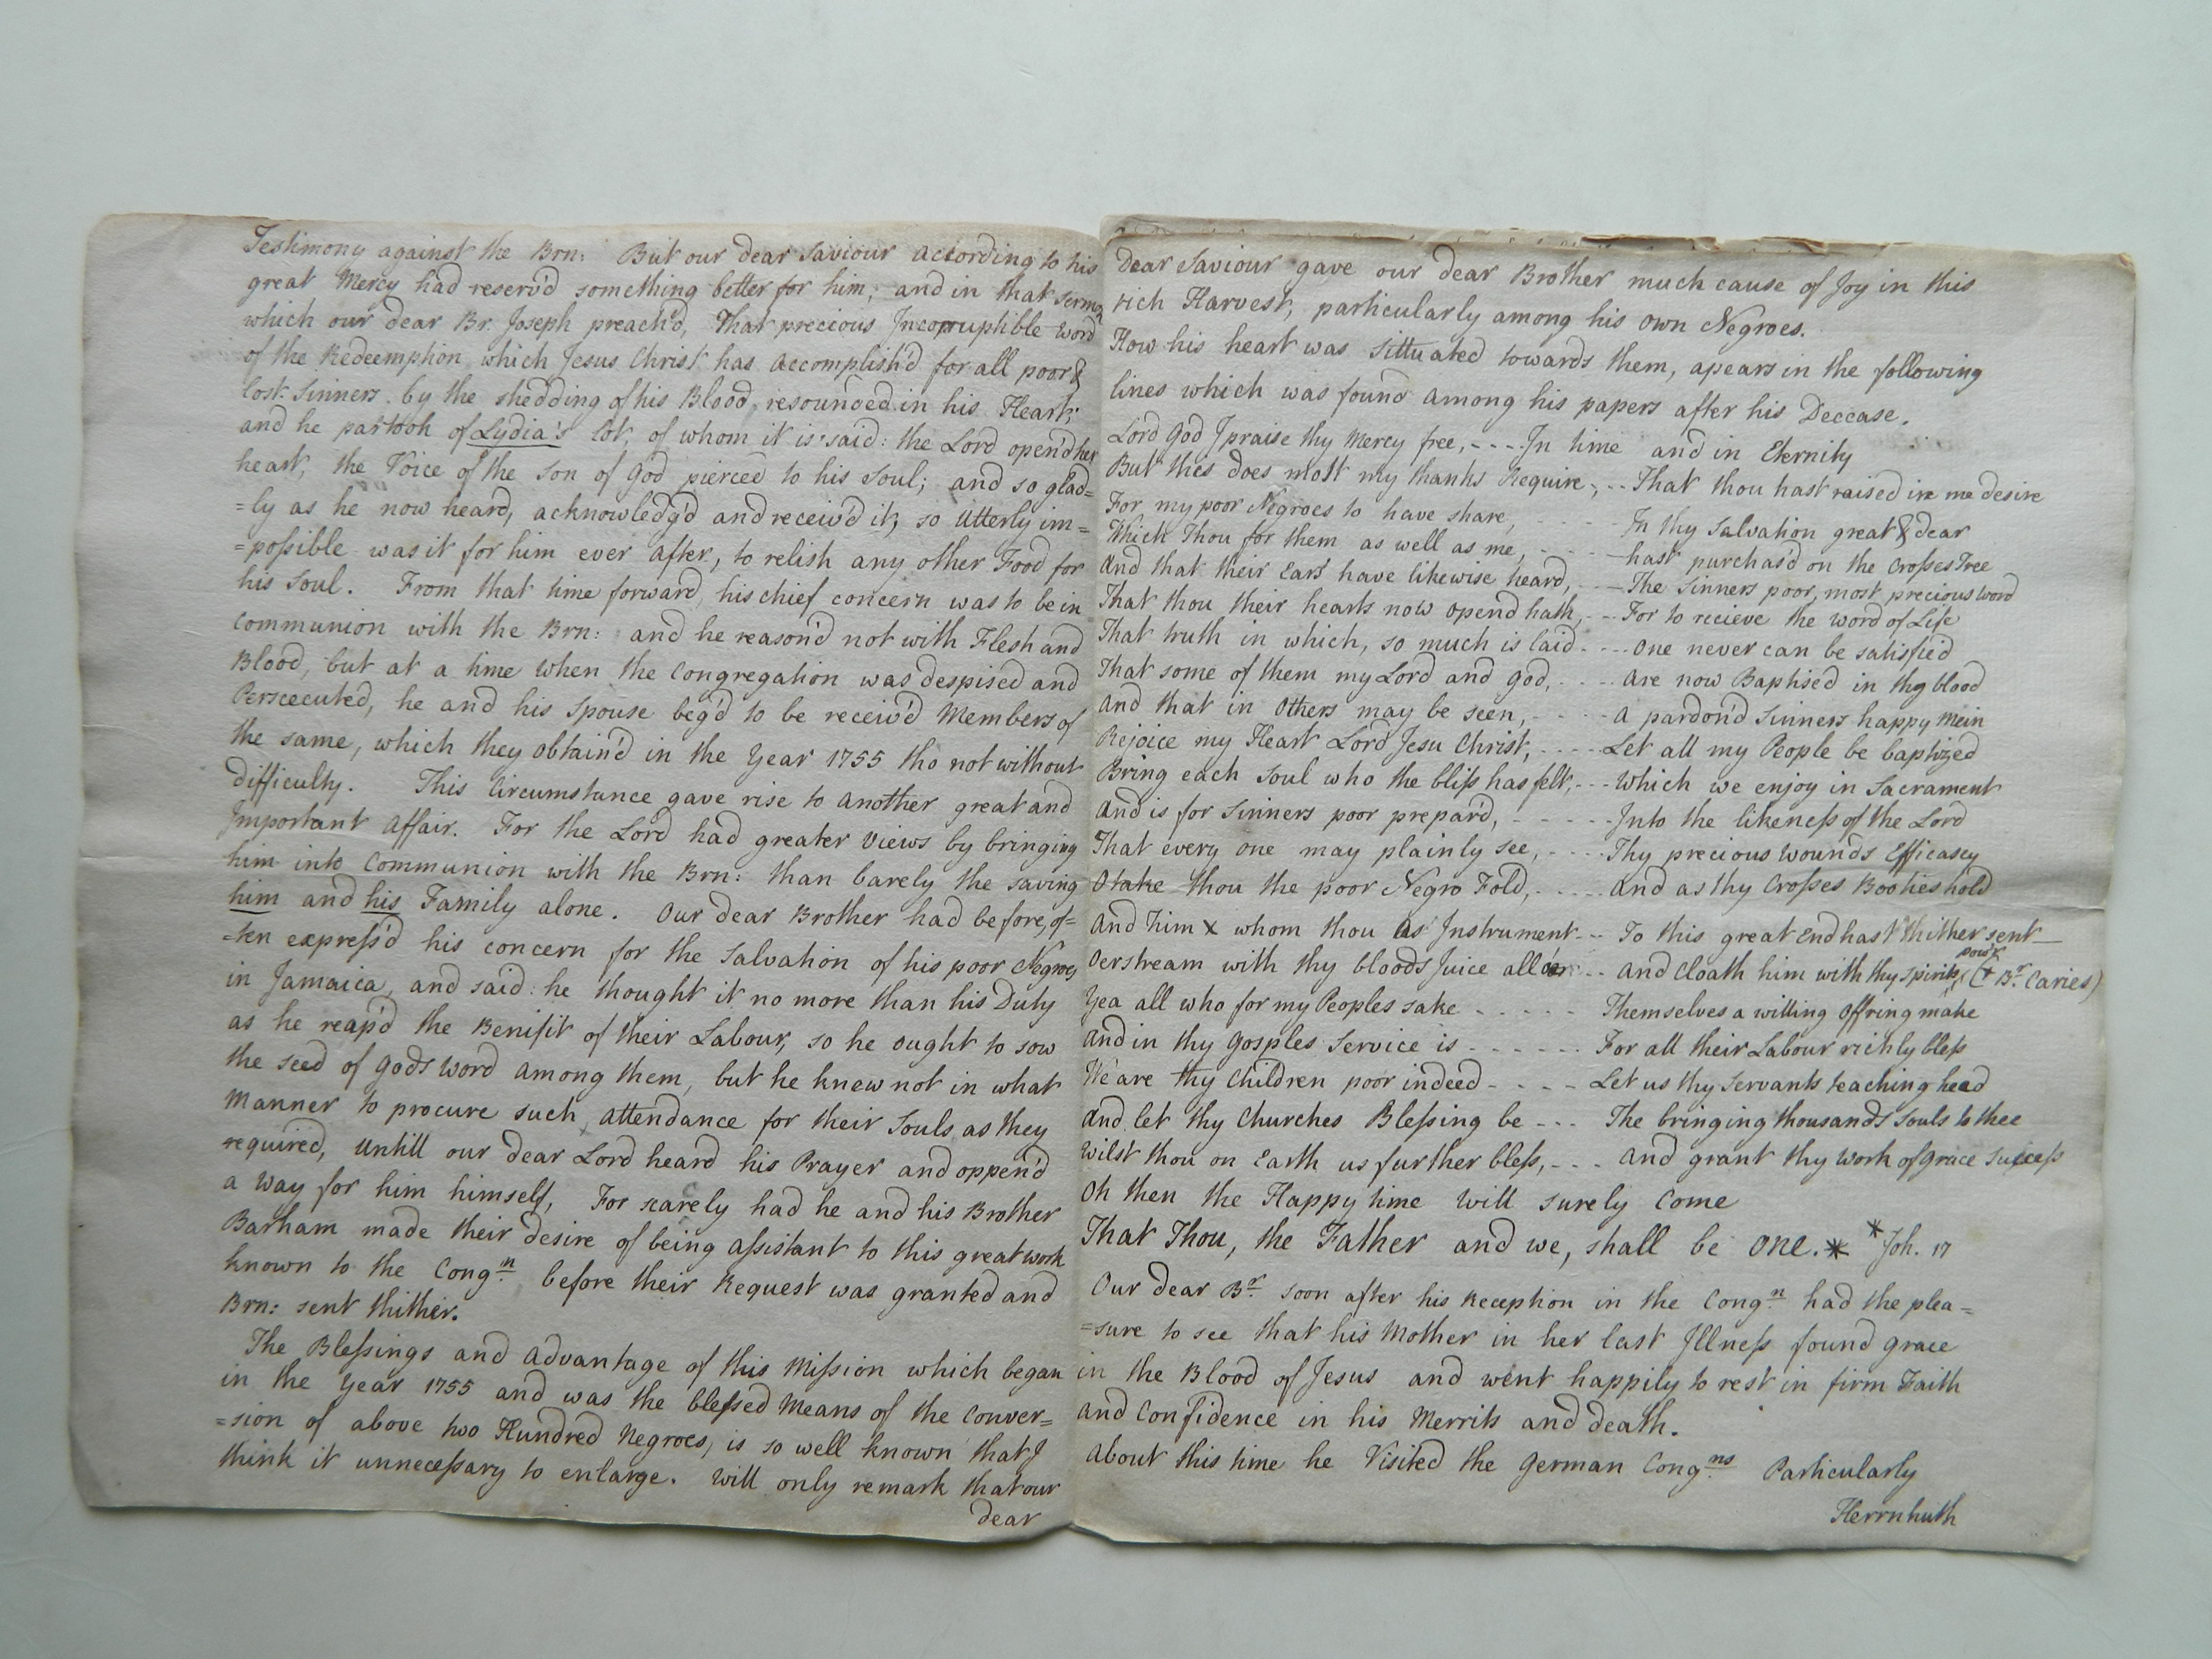 Testimony against the Brn: But our dear Saviour according to his
great Mercy had reserv'd something better for him; and in that Sermo
which our dear Br. Joseph preach'd, That precious Incorruptible Word
of the Redeemption which Jesus Christ has accomplish'd for all poor &
lost Sinners by the shedding of his Blood, resounded in his Heart;
and he partook of Lydia's lot, of whom it is said: the Lord open'd her
heart, the Voice of the Son of God pierced to his Soul; and so glad=
=ly as he now heard, acknowledg'd and receiv'd it, so Utterly im=
=possible was it for him ever after, to relish any other Food for
his Soul. From that time forward, his chief concern was to be in
Communion with the Brn: and he reason'd not with Flesh and
Blood, but at a time when the Congregation was despised and
Persecuted, he and his Spouse beg'd to be receiv'd Members of
the same, which they obtain'd in the Year 1755 tho not without
difficulty. This Circumstance gave rise to another great and
Important affair. For the Lord had greater Views by bringing
him into Communion with the Brn: than barely the saving
him and his Family alone. Our dear Brother had before, of=
=ten express'd his concern for the Salvation of his poor Negroes
in Jamaica, and said: he thought it no more than his Duty
as he reap'd the Benifit of their Labour, so he ought to sow
the seed of Gods Word among them, but he knew not in what
Manner to procure such attendance for their Souls as they
required, Untill our dear Lord heard his Prayer and oppen'd
a Way for him himself, For scarely had he and his Brother
Barham made their desire of being assistant to this great work
known to the Congn. before their Request was granted and
Brn: sent thither.
The Blessings and advantage of this Mission which began
in the Year 1755 and was the blessed Means of the Conver=
=sion of above two Hundred Negroes, is so well known that I
think it unnecessary to enlarge. Will only remark that our
dear
Dear Saviour gave our dear Brother much cause of Joy in this
rich Harvest, particularly among his own Negroes.
How his heart was sittuated towards them, apears in the following
lines which was found among his papers after his Deccase.
Lord God I praise thy Mercy free, - - - - In time and in Eternity
But thes does most my thanks Require, - - That thou hast raised in me desire
For my poor Negroes to have share, - - - - In thy Salvation great & dear
Which Thou for them as well as me, - - - - hast purchas'd on the Crosses Tree
And that their Ears have likewise heard, - - The Sinners poor, most precious word
That thou their hearts now opend hath, - - For to recieve the word of Life
That truth in which, so much is laid - - - - one never can be satisfied
That some of them my Lord and God, - - - - are now Baptised in thy blood
And that in Others may be seen, - - - - a pardon'd Sinners happy Mein
Rejoice my Heart Lord Jesu Christ, - - - - Let all my People be baptized
Bring each Soul who the bliss has felt, - - - Which we enjoy in Sacrament
And is for Sinners poor prepar'd, - - - - - Into the likeness of the Lord
That every one may plainly see, - - - - Thy precious Wounds Efficasey
O take thou the poor Negro Fold, - - - - And as thy Crosses Booties hold
And him x whom thou as Instrument - - To this great End hast thither sent
Oerstream with thy bloods Juice all oer - - And Cloath him with thy Spirits powr (+ Br. Caries)
Yea all who for my Peoples sake - - - - - Themselves a willing Offring make
And in thy Gosples Service is - - - - - - For all their Labour richly bless
We are thy Children poor indeed - - - - Let us thy Servants teaching heed
And let thy Churches Blessing be - - - The bringing thousands Souls to thee
Wilst thou on Earth us further bless, - - - And grant thy Work of grace Success
Oh then the Happy time Will surely Come
That Thou, the Father and we, shall be one.* *Joh. 17
Our dear Br. soon after his Reception in the Congn. had the plea=
=sure to see that his Mother in her last Illness found grace
in the Blood of Jesus and went happily to rest in firm Faith
and Confidence in his Merrits and death.
About this time he Visited the German Congns. Particularly
Herrnhuth